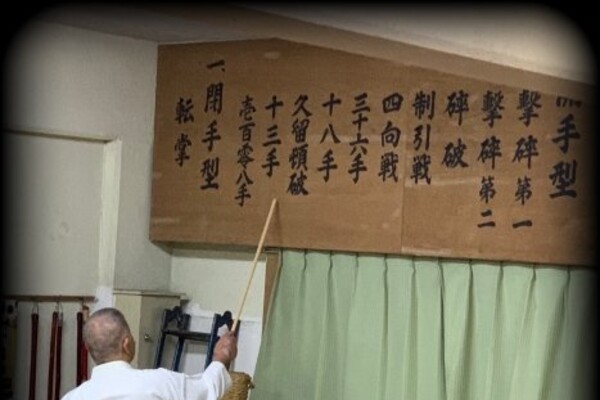 手型
撃碎第一
撃碎第二
碎破
制引戦
四向戦
三十六手
十八手
久留頓破
十三手
壱百零八手
一、閉手型
転掌